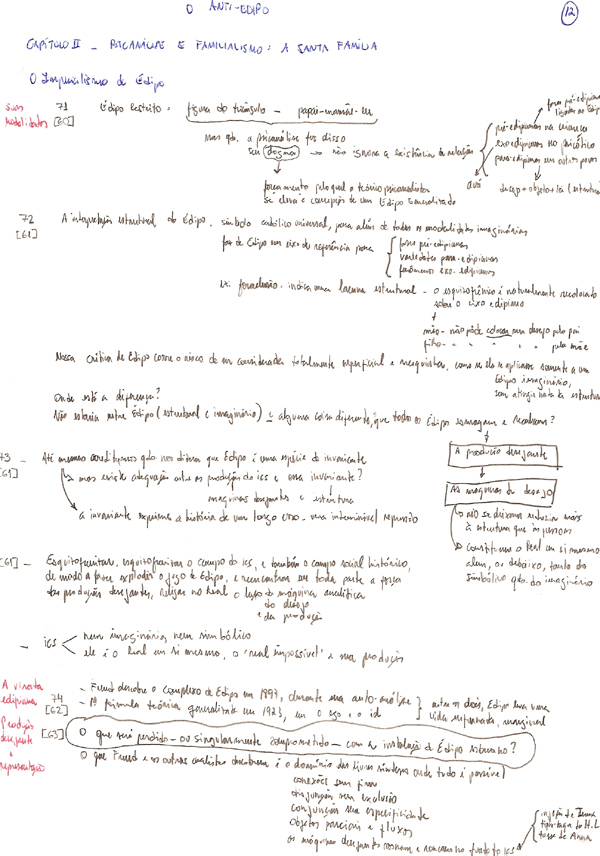 O ANTI-ÉDIPO
12
CAPÍTULO II - PSICANÁLISE E FAMILIALISMO: A SANTA FAMÍLIA
O Imperialismo de Édipo
suas modalidades
71 [60]
Édipo restrito = figura do triângulo - papai-mamãe-eu
mas qdo. a psicanálise faz disso
seu dogma → não ignora a existência de relações
pré-edipianas na criança
exo-edipianas no psicótico
para-edipianas em outros povos
formas pré-edipianas
desejo + objeto + lei
forçamento pelo qual o teórico psicanalista
se eleva à concepção de um Édipo generalizado
72 [61]
A interpretação estrutural do Édipo. símbolo católico universal, para além de todas as modalidades imaginárias
faz de Édipo um eixo de referência para
fases pré-edipianas
variedades para-edipianas
fenômenos exo-edipianos
ex: foraclusão - indica uma lacuna estrutural - o esquizofrênico é naturalmente recolocado
sobre o eixo edipiano
mãe - não pôde colocar seu desejo pelo pai
filho - " " " " " pela mãe
Nossa crítica de Édipo corre o risco de ser considerada totalmente superficial e mesquinha, como se ela se aplicasse somente a um
Édipo imaginário,
sem atingir nada da estrutura
Onde está a diferença?
Não estaria entre Édipo (estrutural e imaginário) e alguma coisa diferente, que todos os Édipo esmagam e recalcam?
A produção desejante
As máquinas do desejo
→ não se deixam reduzir mais
à estrutura que às pessoas
→ constituem o Real em si mesmo
além, ou debaixo, tanto do
simbólico qdo. do imaginário
73 [61] - Até mesmo acreditamos qdo. nos dizem que Édipo é uma espécie de invariante
→ mas existe adequação entre as produções do ics e essa invariante?
máquinas desejantes e estrutura
a invariante exprime a história de um longo erro - uma interminável repressão
[61] - Esquizofrenizar, esquizofrenizar o campo do ics, e também o campo social histórico,
de modo a fazer explodir o jugo de Édipo, e reencontrar em toda parte a força
das produções desejantes, religar no Real o laço da máquina analítica
do desejo
e da produção
- ics
nem imaginário, nem simbólico
ele é o Real em si mesmo, o "real impossível" e sua produção
A viravolta edipiana
74 [62]
- Freud descobre o complexo de Édipo em 1897, durante sua auto-análise
- 1ª fórmula teórica generalizada em 1923, em O ego e o id
entre os dois, Édipo leva uma
vida marginal
[63]
Produção desejante e representação
O que será perdido - ou singularmente comprometido - com a instalação de Édipo soberano?
O que Freud e os outros analistas descobrem é o domínio das livres sínteses onde tudo é possível
conexões sem fim
disjunção sem exclusão
conjunção sem especificidade
objetos parciais e fluxos
as máquinas desejantes roncam no fundo do ics
injeção de Irma
tosse de Anna